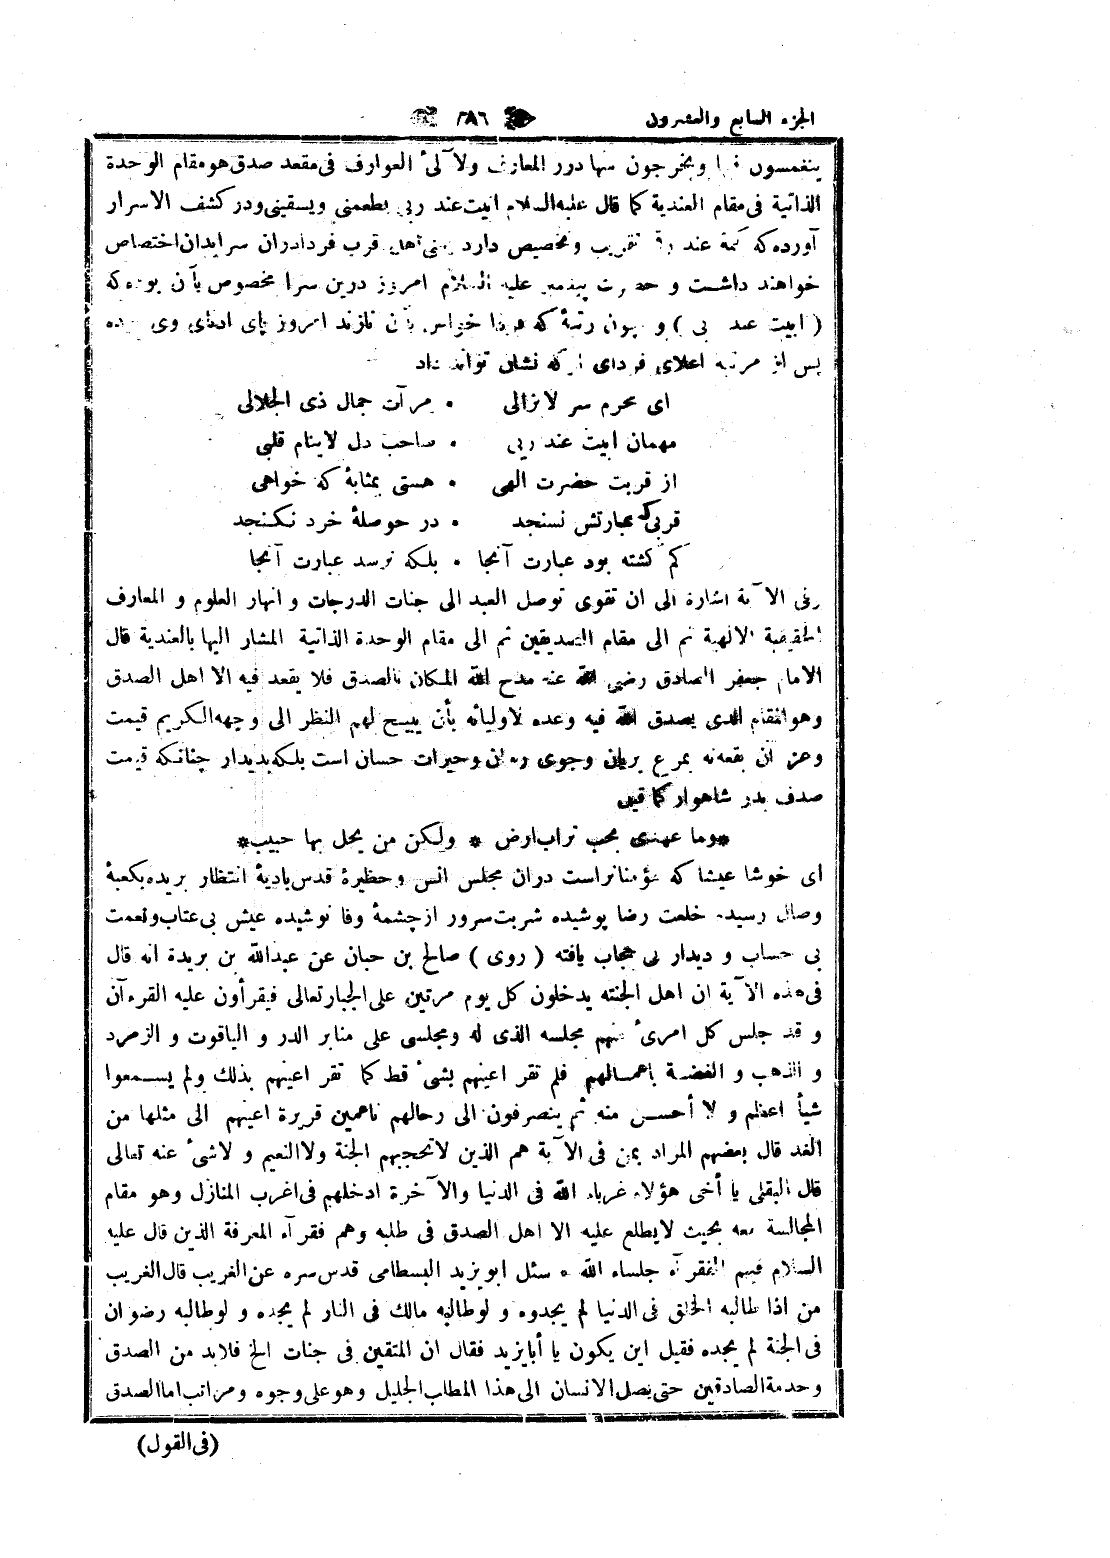 الجزء السابع والعشرون ٢٨٦
ينغمسون فيها ويخرجون منها درر المعارف ولآلئ العوارف فى مقعد صدق هو مقام الوحدة
الذاتية فى مقام العندية كما قال عليه السلام ابيت عند ربى يطعمنى ويسقينى ودر كشف الاسرار
آورده كه كلمة عند تقريب وتخصيص دارد يعنى اهل قرب فردا دران سراى بدان اختصاص
خواهند داشت و حضرت پيغمبر عليه السلام امروز درين سرا مخصوص بآن بوده كه
( ابيت عند ربى ) و چون رتبهٔ كه فردا خواص بآن نازند امروز پاى ادناى وى بوده
پس از مرتبهٔ اعلاى فرداى او كه نشان تواند داد
اى محرم سر لايزالى • مرآت جمال ذى الجلالى
مهمان ابيت عند ربى • صاحب دل لاينام قلبى
از قربت حضرت الهى • هستى بمثابهٔ كه خواهى
قربى كه عبارتش نسنجد • در حوصلهٔ خرد نكنجد
كم كشته بود عبارت آنجا • بلكه نرسد عبارت آنجا
وفى الآية اشارة الى ان تقوى توصل العبد الى جنات الدرجات و انهار العلوم و المعارف
الحقيقية الالهية ثم الى مقام الصديقين ثم الى مقام الوحدة الذاتية المشار اليها بالعندية قال
الامام جعفر الصادق رضى الله عنه مدح الله المكان بالصدق فلا يقعد فيه الا اهل الصدق
وهو المقام الذى يصدق الله فيه وعده لاوليائه بأن يبيح لهم النظر الى وجهه الكريم قيمت
وعز آن بقعه نه بمرغ بريان وجوى روان وخيرات حسان است بلكه بديدار چنانكه قيمت
صدف بدر شاهوار كما قيل
*وما عهدى بحب تراب ارض * ولكن من يحل بها حبيب*
اى خوشا عيشا كه مؤمنانراست دران مجلس انس وحظيرة قدس باديهٔ انتظار بريده بكعبهٔ
وصال رسيده خلعت رضا پوشيده شربت سرور از چشمهٔ وفا نوشيده عيش بى عتاب ونعمت
بى حساب و ديدار بى حجاب يافته ( روى ) صالح بن حبان عن عبدالله بن بريدة انه قال
فى هذه الآية ان اهل الجنته يدخلون كل يوم مرتين على الجبار تعالى فيقرأون عليه القرءآن
و قد جلس كل امرئ منهم مجلسه الذى له ومجلسى على منابر الدر و الياقوت و الزمرد
و الذهب و الفضة باعمالهم فلم تقر اعينهم بشئ قط كما تقر اعينهم بذلك ولم يسمعوا
شيأ اعظم و لا أحسن منه ثم ينصرفون الى رحالهم ناعمين قريرة اعينهم الى مثلها من
الغد قال بعضهم المراد بمن فى الآية هم الذين لاتحجبهم الجنة ولا النعيم و لاشئ عنه تعالى
قال البقلى يا أخى هؤلاء غرباء الله فى الدنيا والآخرة ادخلهم فى اغرب المنازل وهو مقام
المجالسة معه بحيث لايطلع عليه الا اهل الصدق فى طلبه وهم فقرآء المعرفة الذين قال عليه
السلام فيهم الفقرآء جلساء الله • سئل ابو يزيد البسطامى قدس سره عن الغريب قال الغريب
من اذا طالبه الخلق فى الدنيا لم يجدوه و لو طالبه مالك فى النار لم يجده و لو طالبه رضوان
فى الجنة لم يجده فقيل اين يكون يا أبايزيد فقال ان المتقين فى جنات الخ فلابد من الصدق
وخدمة الصادقين حتى يصل الانسان الى هذا المطلب الجليل وهو على وجوه ومراتب اما الصدق
(فى القول)